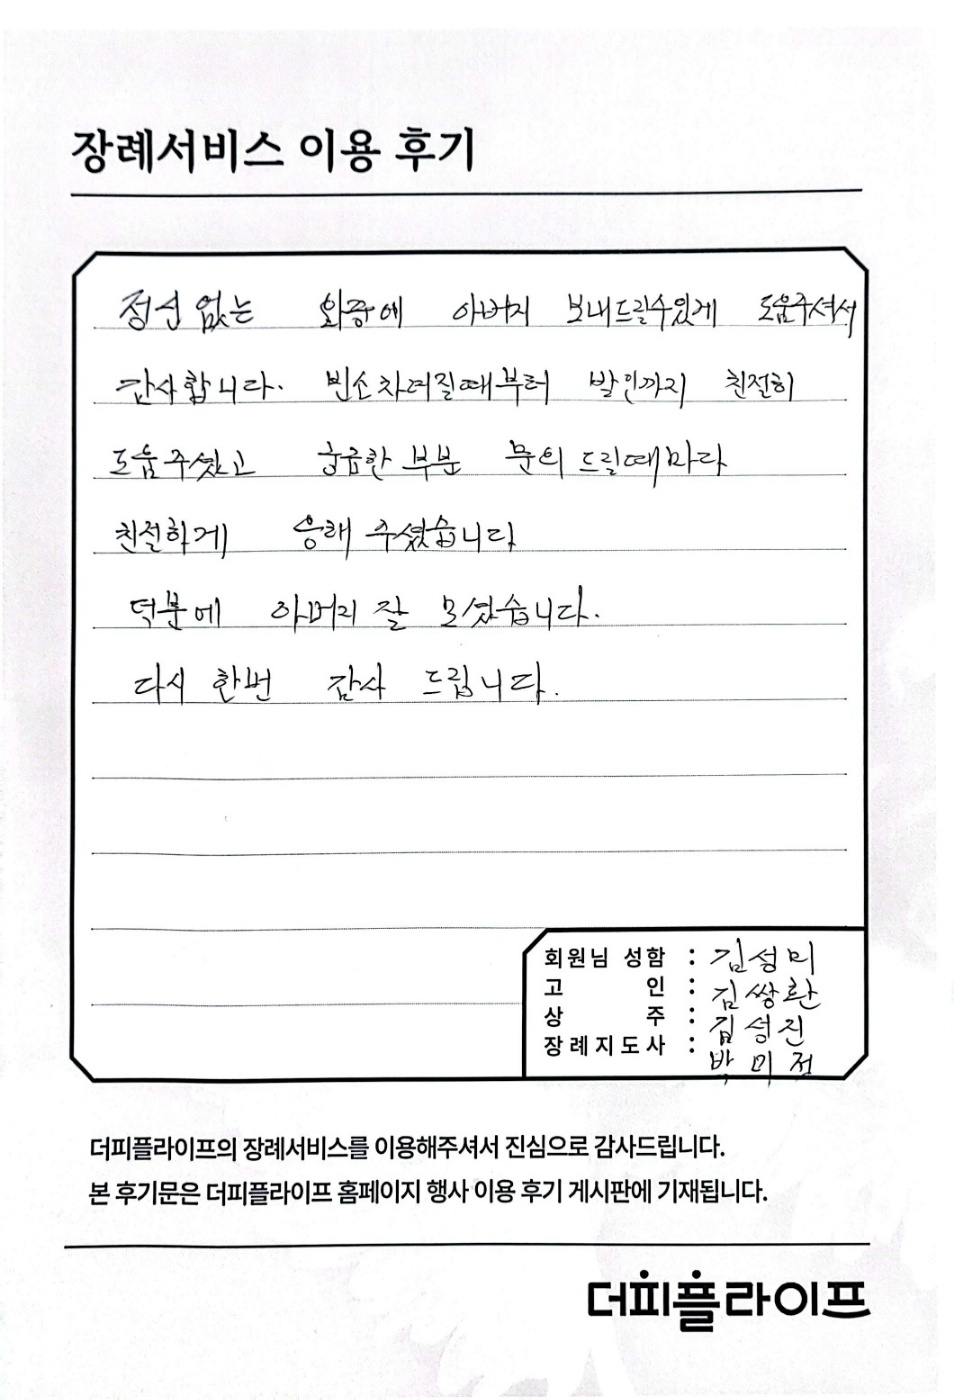 장례서비스 이용 후기
정신 없는 와중에 아버지 보내드릴수있게 도움주셔서
감사합니다. 빈소차려질때부터 발인까지 친절히
도움주셨고 궁금한 부분 문의 드릴때마다
친절하게 응대 주셨습니다
덕분에 아버지 잘 모셨습니다.
다시 한번 감사 드립니다.
회원님 성함 : 김성미
고 인 : 김쌍환
상 주 : 김성진
장례지도사 : 박미정
더피플라이프의 장례서비스를 이용해주셔서 진심으로 감사드립니다.
본 후기문은 더피플라이프 홈페이지 행사 이용 후기 게시판에 기재됩니다.
더피플라이프